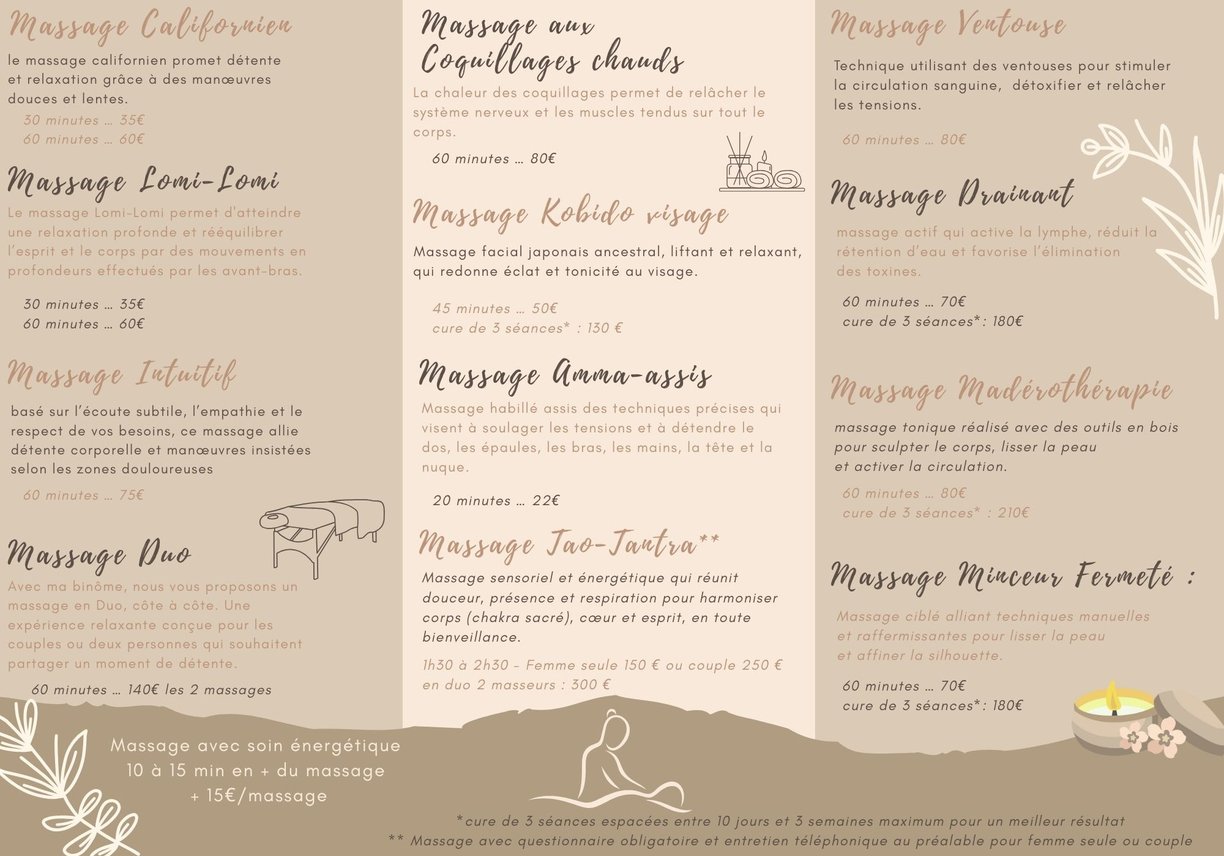 Massage Californien
le massage californien promet détente
et relaxation grâce à des manœuvres
douces et lentes.
30 minutes ... 35€
60 minutes ... 60€
Massage Lomi-Lomi
Le massage Lomi-Lomi permet d'atteindre
une relaxation profonde et rééquilibrer
l'esprit et le corps par des mouvements en
profondeurs effectués par les avant-bras.
30 minutes ... 35€
60 minutes ... 60€
Massage Intuitif
basé sur l'écoute subtile, l'empathie et le
respect de vos besoins, ce massage allie
détente corporelle et manœuvres insistées
selon les zones douloureuses
60 minutes ... 75€
Massage Duo
Avec ma binôme, nous vous proposons un
massage en Duo, côte à côte. Une
expérience relaxante conçue pour les
couples ou deux personnes qui souhaitent
partager un moment de détente.
60 minutes ... 140€ les 2 massages
Massage avec soin énergétique
10 à 15 min en + du massage
+ 15€/massage
Massage aux
Coquillages chauds
La chaleur des coquillages permet de relâcher le
système nerveux et les muscles tendus sur tout le
corps.
60 minutes ... 80€
Massage Kobido visage
Massage facial japonais ancestral, liftant et relaxant,
qui redonne éclat et tonicité au visage.
45 minutes ... 50€
cure de 3 séances* : 130 €
Massage Amma-assis
Massage habillé assis des techniques précises qui
visent à soulager les tensions et à détendre le
dos, les épaules, les bras, les mains, la tête et la
nuque.
20 minutes ... 22€
Massage Tao-Tantra**
Massage sensoriel et énergétique qui réunit
douceur, présence et respiration pour harmoniser
corps (chakra sacré), cœur et esprit, en toute
bienveillance.
1h30 à 2h30 - Femme seule 150 € ou couple 250 €
en duo 2 masseurs : 300 €
Massage Ventouse
Technique utilisant des ventouses pour stimuler
la circulation sanguine, détoxifier et relâcher
les tensions.
60 minutes ... 80€
Massage Drainant
massage actif qui active la lymphe, réduit la
rétention d'eau et favorise l'élimination
des toxines.
60 minutes ... 70€
cure de 3 séances* : 180€
Massage Madérothérapie
massage tonique réalisé avec des outils en bois
pour sculpter le corps, lisser la peau
et activer la circulation.
60 minutes ... 80€
cure de 3 séances* : 210€
Massage Minceur Fermeté :
Massage ciblé alliant techniques manuelles
et raffermissantes pour lisser la peau
et affiner la silhouette.
60 minutes ... 70€
cure de 3 séances* : 180€
*cure de 3 séances espacées entre 10 jours et 3 semaines maximum pour un meilleur résultat
** Massage avec questionnaire obligatoire et entretien téléphonique au préalable pour femme seule ou couple